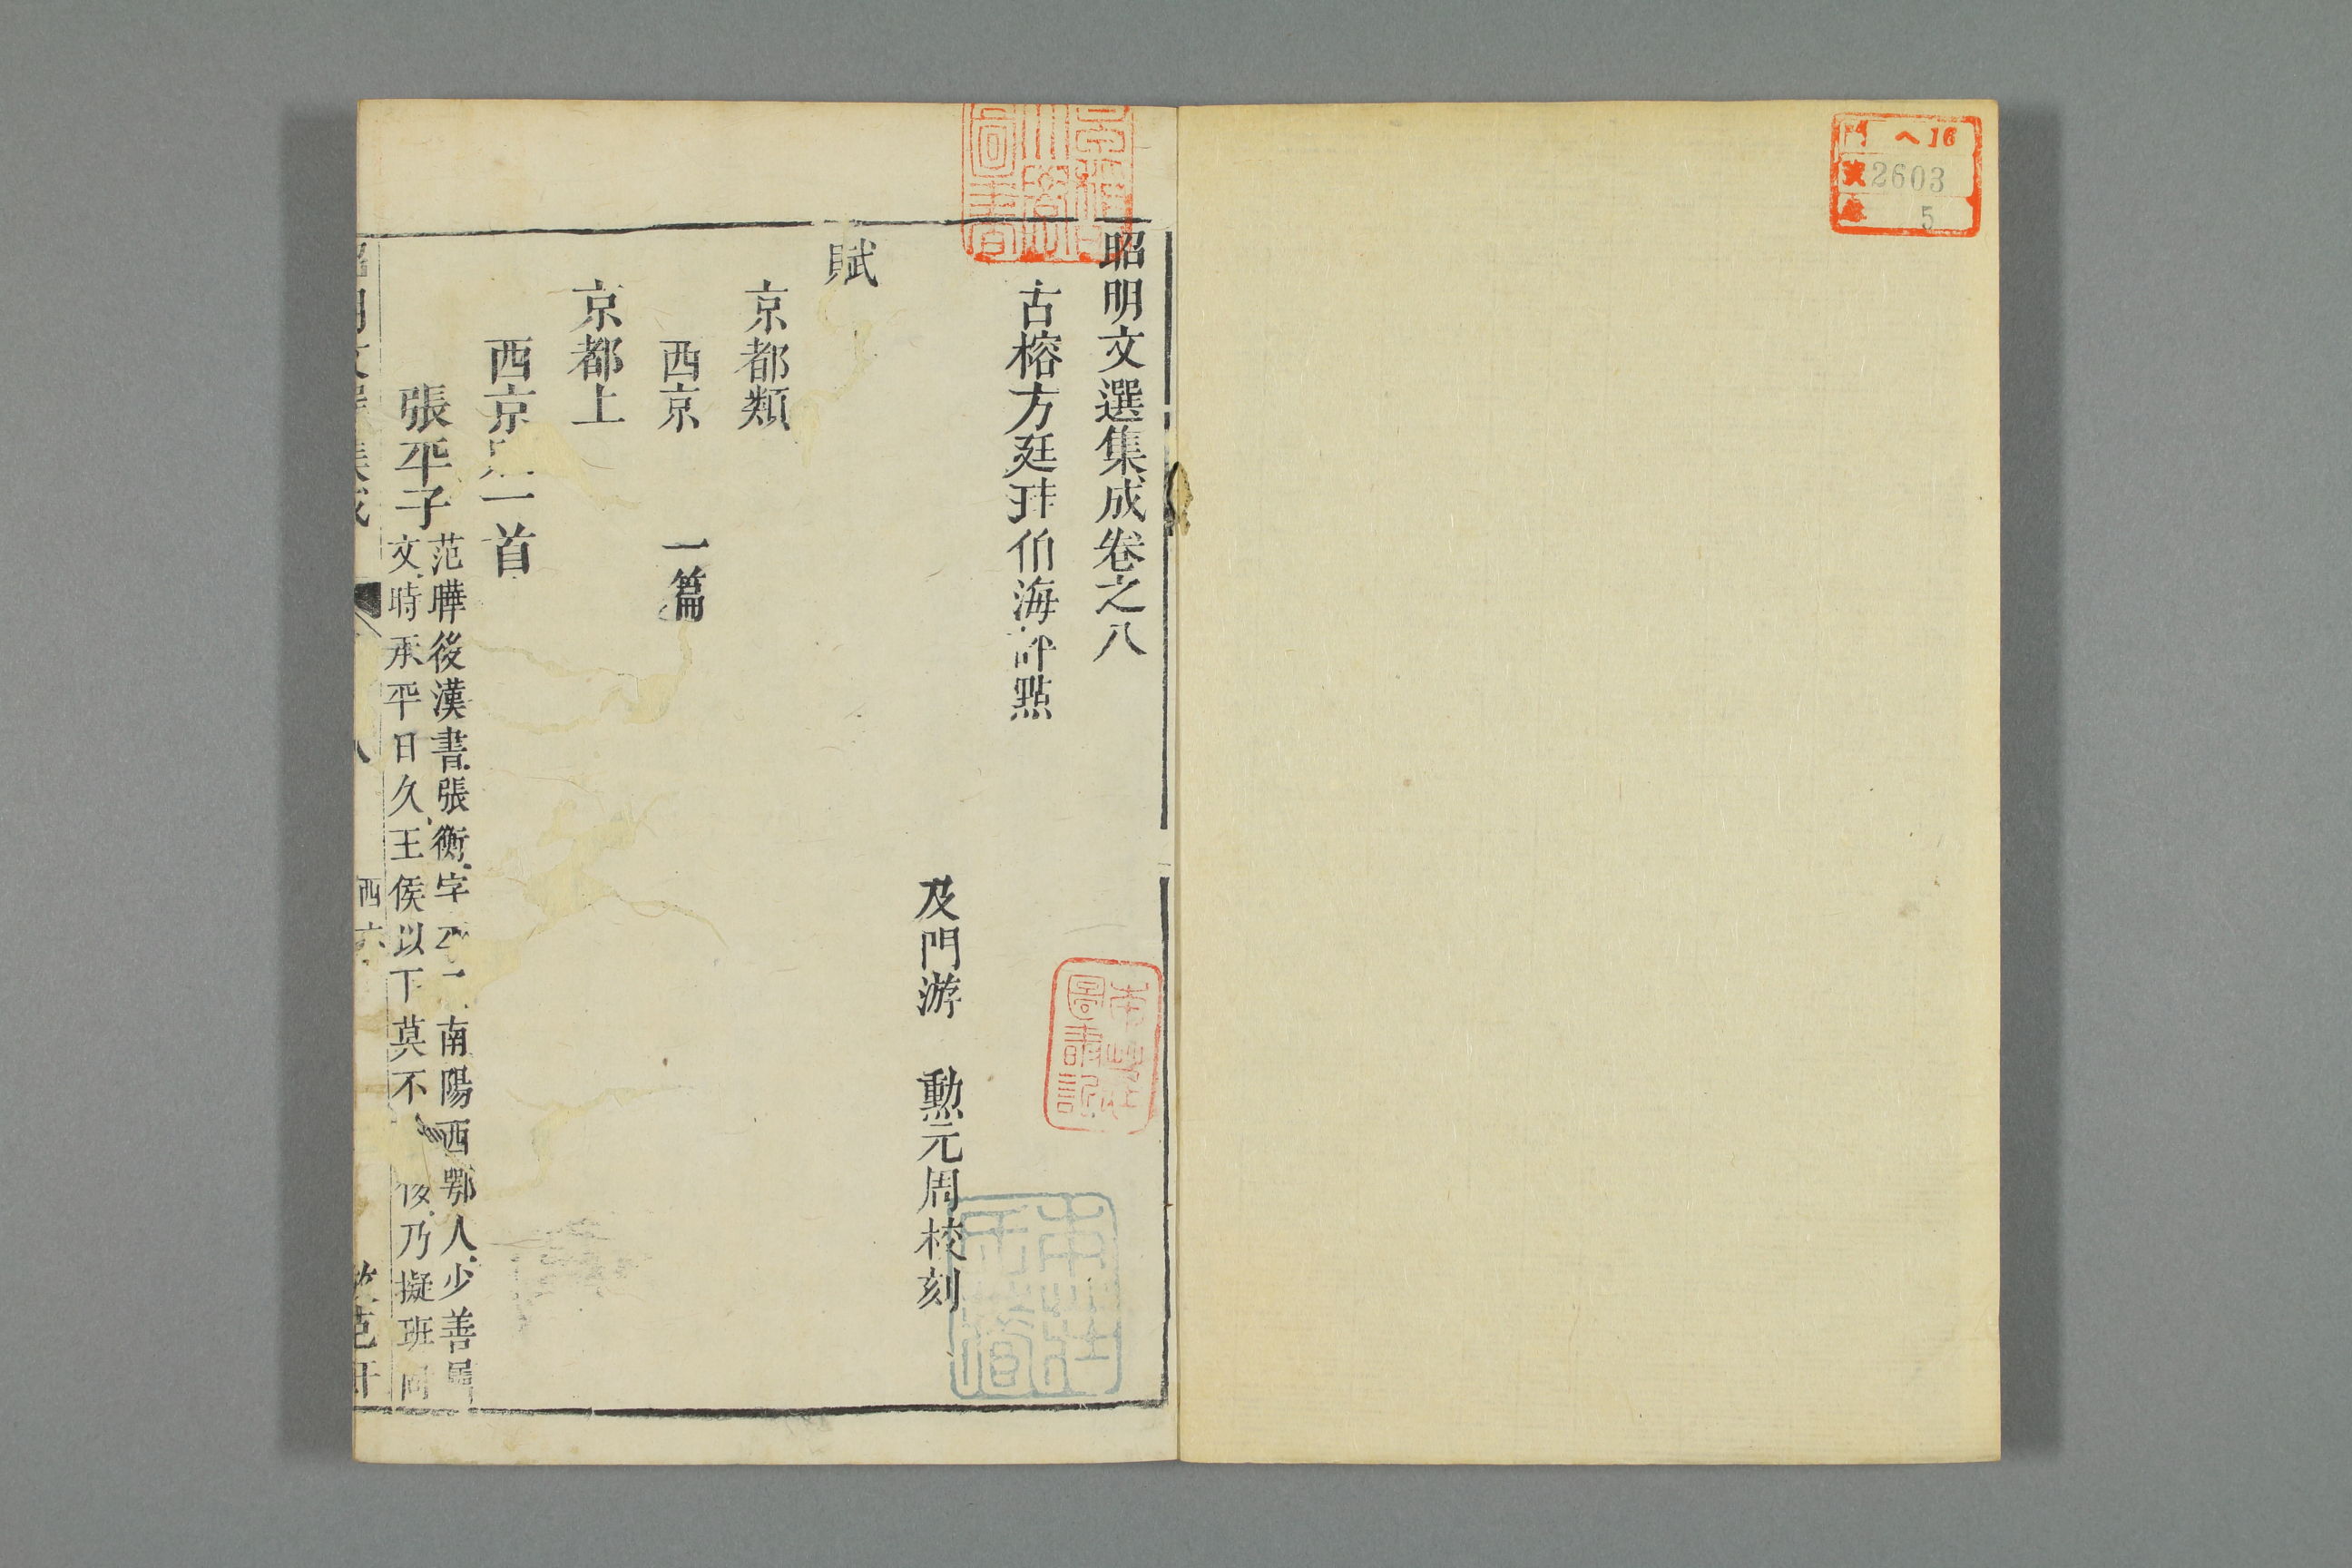 門 ヘ16
號 2603
巻 5
昭明文選集成卷之八
古榕方廷珪伯海評點
及門游 勲元周校刻
賦
京都類
西京 一篇
京都上
西京 一首
張平子
范曄後漢書張衡字 南陽西鄂人少善屬
文時承平日久王侯以下莫不 侈乃擬班固
圖書記